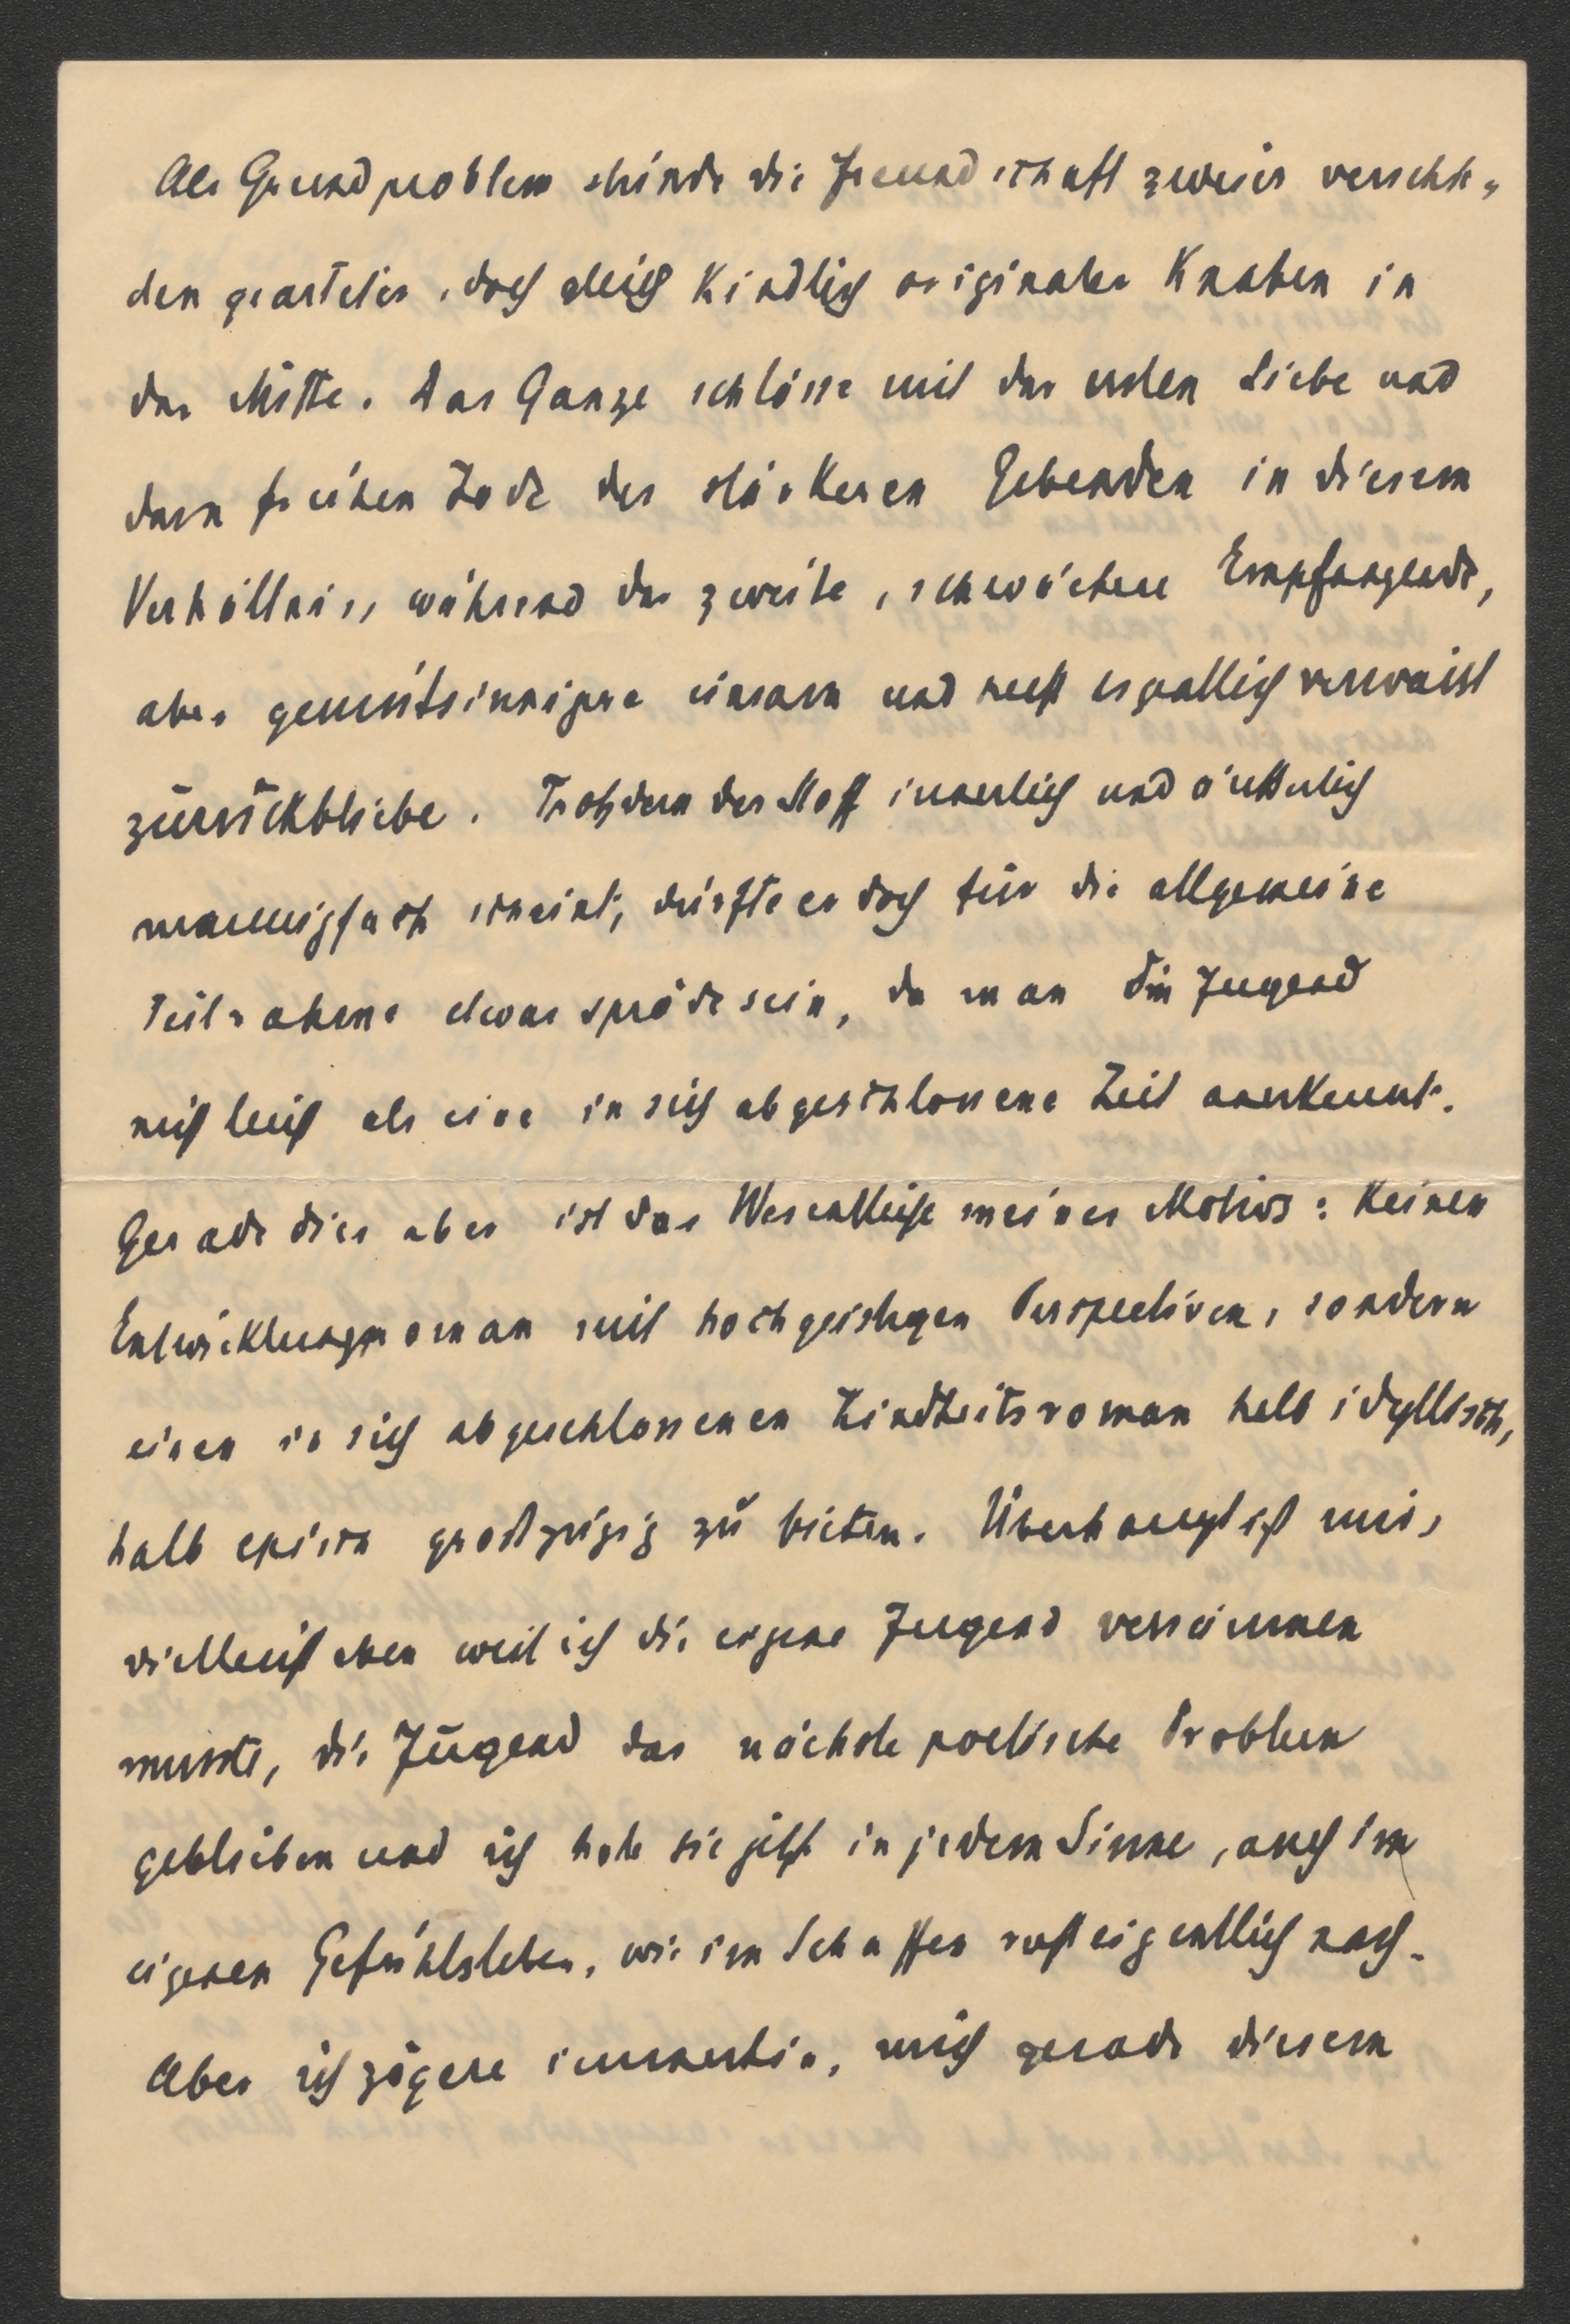 Als Grundproblem stünde die Freundschaft zweier verschie-
den gearteter, doch gleich kindlich originaler Knaben in
der Mitte. Das Ganze schlösse mit der ersten Liebe und
dem frühen Tode des stärkeren Gebenden in diesem
Verhältnis, während der zweite, schwächere Empfangende,
aber gemütsinnigere einsam und recht eigentlich verwaist
zurückbliebe. Trotzdem der Stoff innerlich und äußerlich
mannigfach scheint, dürfte er doch für die allgemeine
Teilnahme etwas spröde sein, da man die Jugend
nicht leicht als eine in sich abgeschlossene Zeit anerkennt.
Gerade dies aber ist das Wesentliche meines Motivs: Keinen
Entwicklungsroman mit hochgeistigen Perspectiven, sondern
einen in sich abgeschlossenen Kindheitsroman halb idyllisch,
halb episch großzügig zu bieten. Überhaupt ist mir,
vielleicht eben weil ich die eigene Jugend versäumen
musste, die Jugend das nächste poetische Problem
geblieben und ich hole sie jetzt in jedem Sinne, auch im
eigenen Gefühlsleben, wie im Schaffen recht eigentlich nach.
Aber ich zögere immerhin, mich gerade diesem